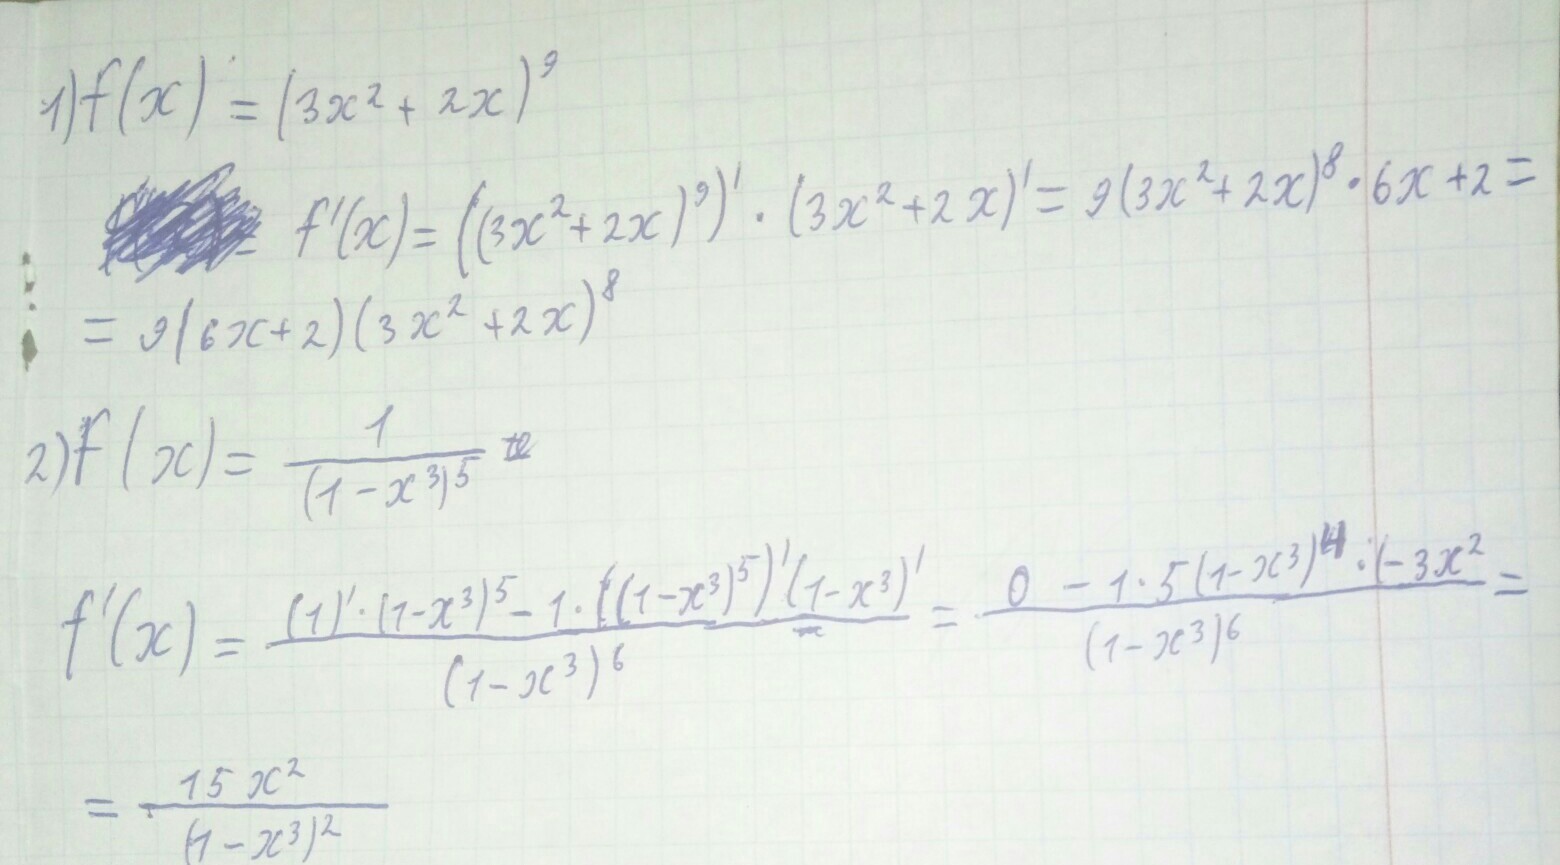 1) f(x) = (3x² + 2x)⁹
f'(x) = ((3x² + 2x)⁹)' · (3x² + 2x)' = 9(3x² + 2x)⁸ · 6x + 2 =
= 9(6x + 2)(3x² + 2x)⁸
2) f(x) = 1/(1 - x³)⁵
f'(x) = ((1)' · (1 - x³)⁵ - 1 · ((1 - x³)⁵)' (1 - x³)')/(1 - x³)⁶ = (0 - 1 · 5(1 - x³)⁴ · (-3x²)/(1 - x³)⁶ =
= 15x²/(1 - x³)²